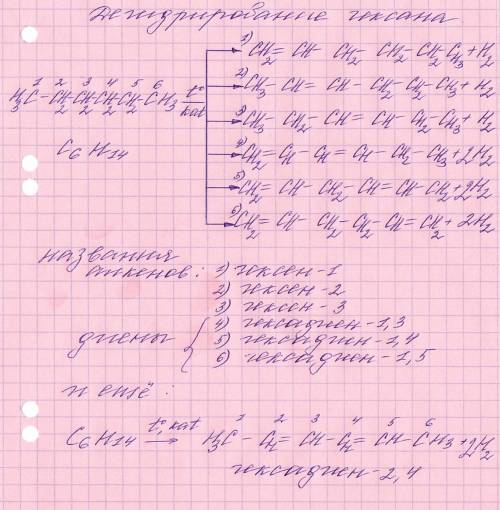 Дегидрирование гексана
1) CH2= CH - CH2 - CH2 - CH2 - CH3 + H2
2) CH3 - CH = CH - CH2 - CH2 - CH3 + H2
1 2 3 4 5 6
H3C - CH2 - CH2 - CH2 - CH2 - CH3 t° kat
3) CH3 - CH2 - CH = CH - CH2 - CH3 + H2
C6H14
4) CH2 = CH - CH = CH - CH2 - CH3 + 2H2
5) CH2 = CH - CH2 - CH = CH - CH2 + 2H2
6) CH2 = CH - CH2 - CH2 - CH = CH2 + 2H2
названия
алкенов: 1) гексен-1
2) гексен-2
3) гексен-3
диены { 4) гексадиен-1,3
5) гексадиен-1,4
6) гексадиен-1,5
и ещё:
1 2 3 4 5 6
C6H14 t°, kat → H3C - CH= CH - CH= CH - CH3 + 2H2
гексадиен-2,4